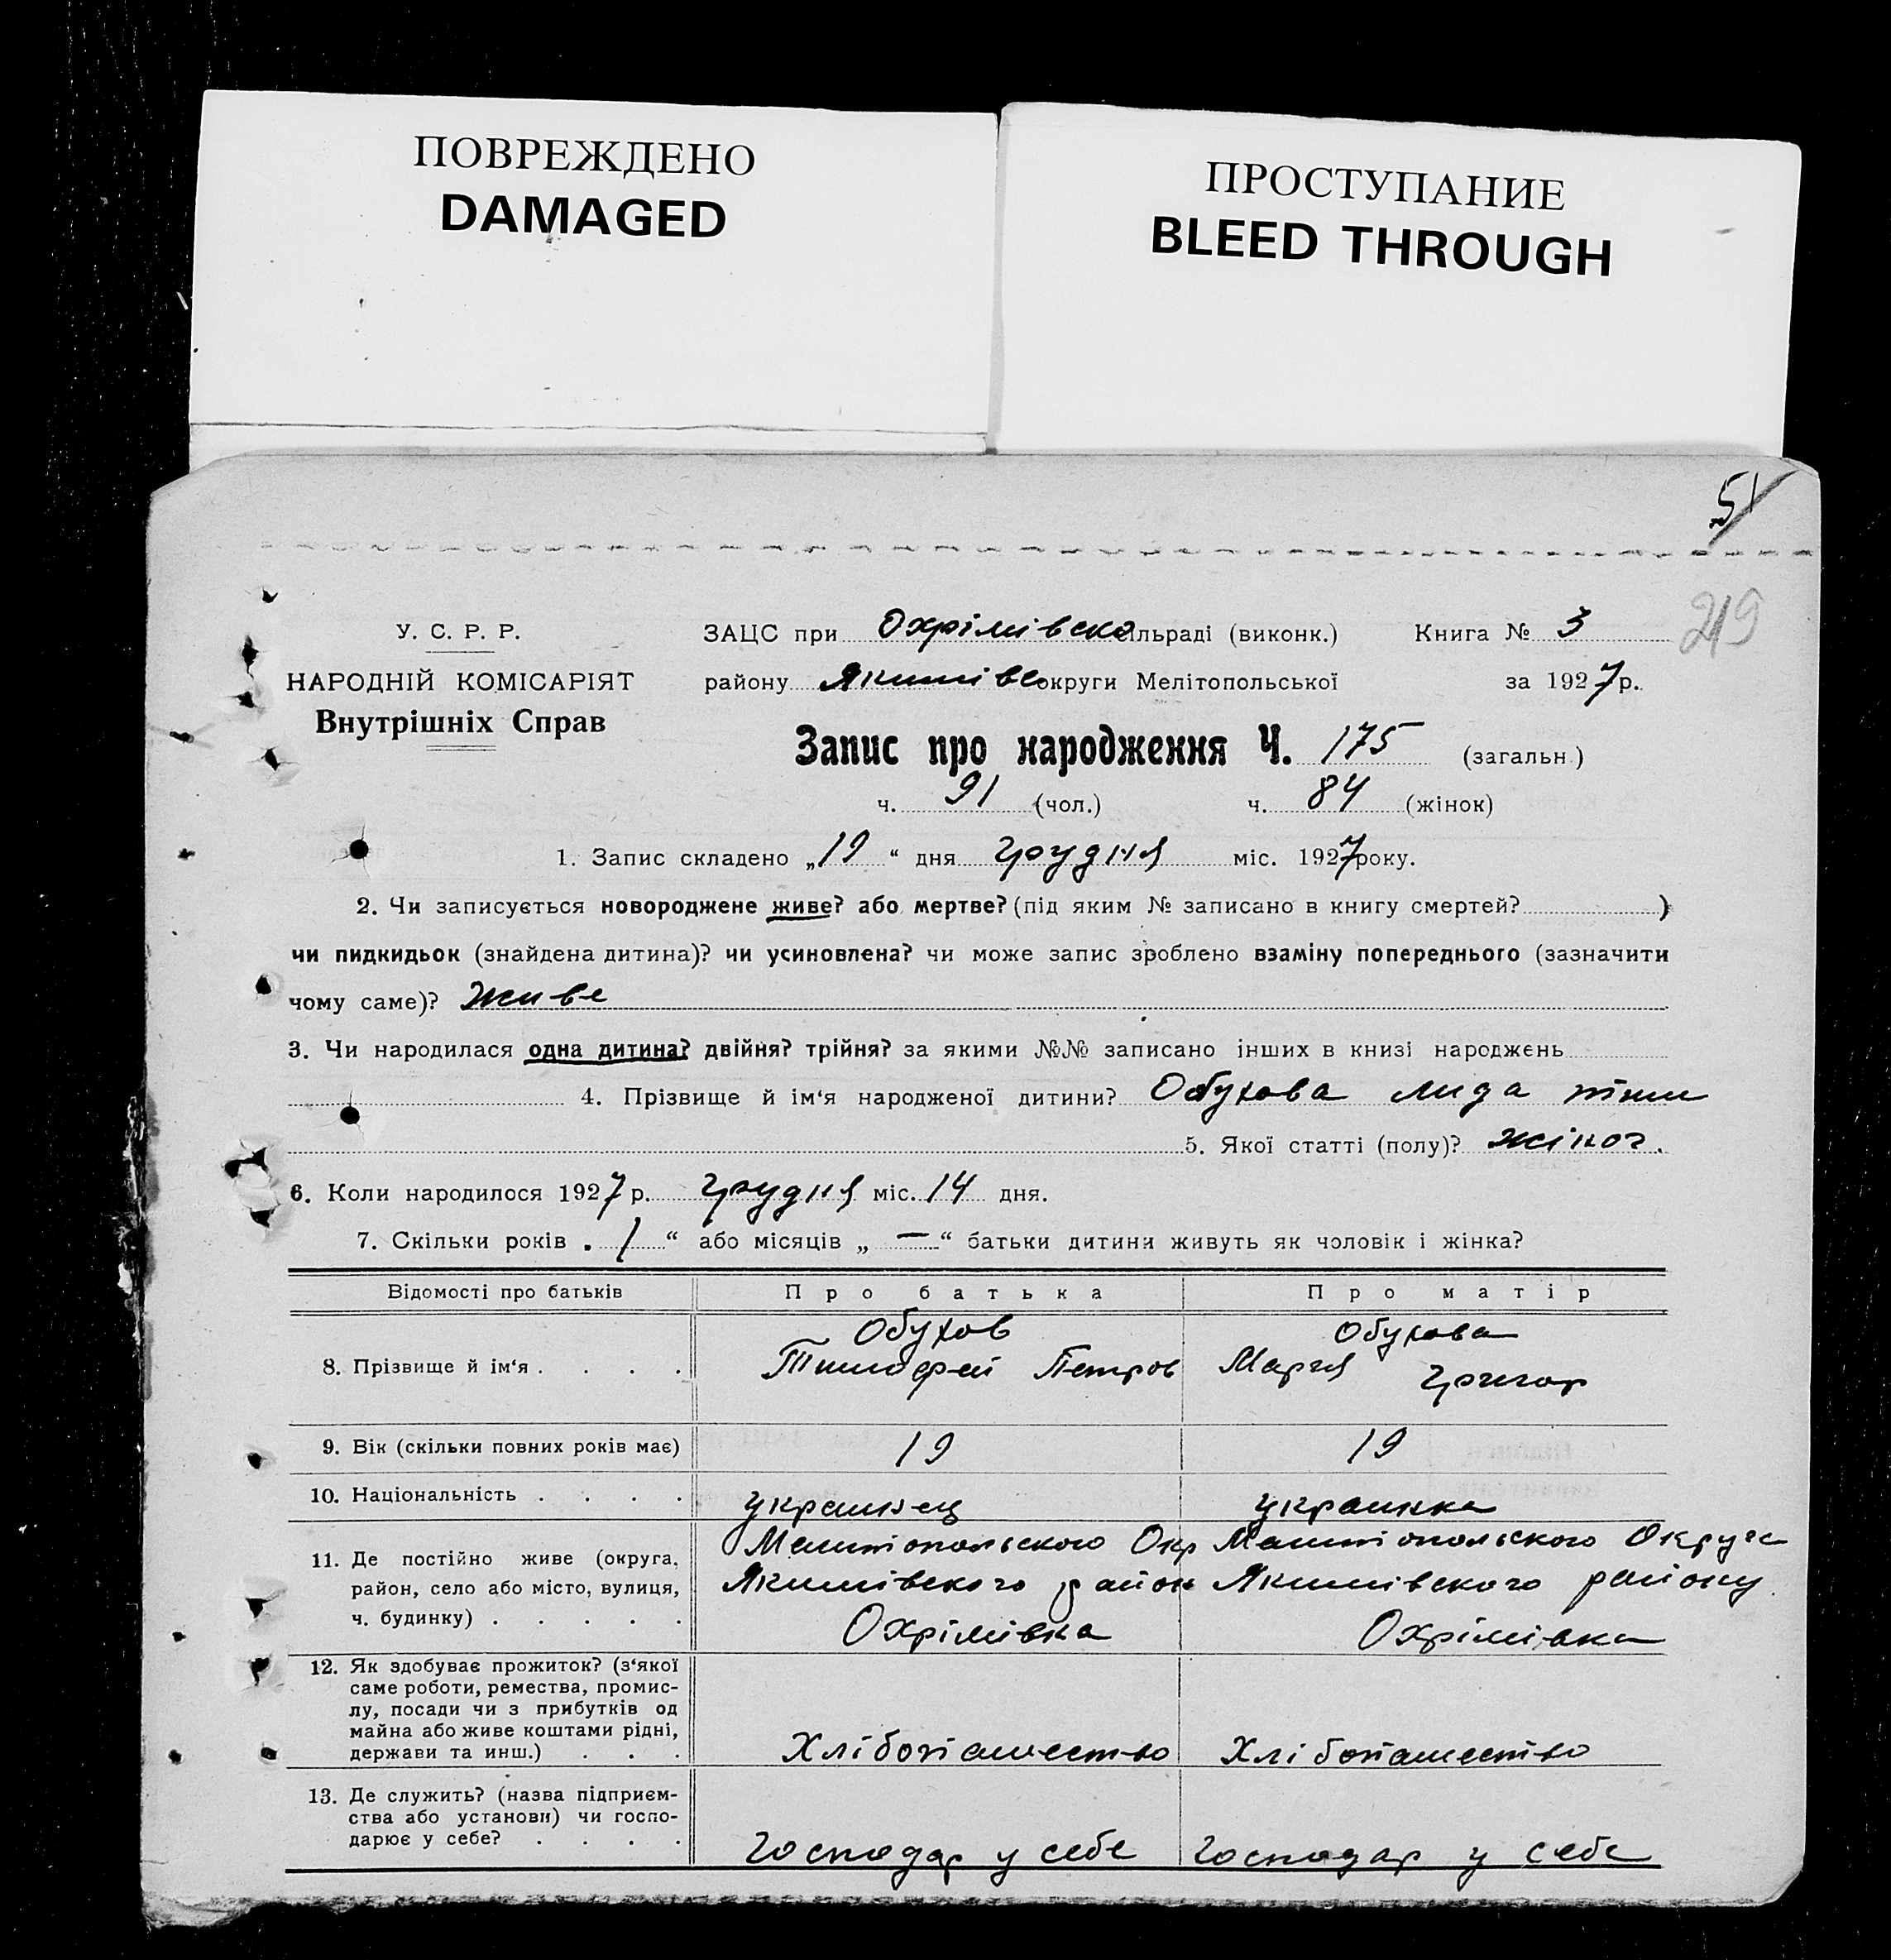 ПОВРЕЖДЕНО
DAMAGED
ПРОСТУПАНИЕ
BLEED THROUGH
51
219
У. С. Р. Р.
НАРОДНІЙ КОМІСАРІЯТ
Внутрішніх Справ
ЗАЦС при Охрімівско ільраді (виконк.) Книга № 3
району Якимівс округи Мелітопольської за 1927 р.
Запис про народження Ч. 175 (загальн.)
ч. 91 (чол.) ч. 84 (жінок)
1. Запис складено „19“ дня грудня міс. 1927 року.
2. Чи записується новороджене живе? або мертве? (під яким № записано в книгу смертей? )
чи пидкидьок (знайдена дитина)? чи усиновлена? чи може запис зроблено взаміну попереднього (зазначити
чому саме)? Живе
3. Чи народилася одна дитина? двійня? трійня? за якими №№ записано інших в книзі народжень
4. Прізвище й ім‘я народженої дитини? Обухова Лида тим
5. Якої статті (полу)? жіноч.
6. Коли народилося 1927 р. грудня міс. 14 дня.
7. Скільки років „ 1 “ або місяців „ — “ батьки дитини живуть як чоловік і жінка?
Відомості про батьків Про батька Про матір
8. Прізвище й ім‘я . . . .
Обухов
Тимофей Петров
Обухова
Мария Григор
9. Вік (скільки повних років має) 19 19
10. Національність . . . . украинец украинка
11. Де постійно живе (округа,
район, село або місто, вулиця,
ч. будинку) . . . . .
Мелитопольского Окр
Якимівского район
Охрімівка
Мелитопольского Округа
Якимівского району
Охрімівка
12. Як здобуває прожиток? (з‘якої
саме роботи, ремества, промис-
лу, посади чи з прибутків од
майна або живе коштами рідні,
держави та инш.) . . .
Хліборопашество Хлібопашество
13. Де служить? (назва підприєм-
ства або установи) чи госпо-
дарює у себе? . . . .
господар у себе господар у себе